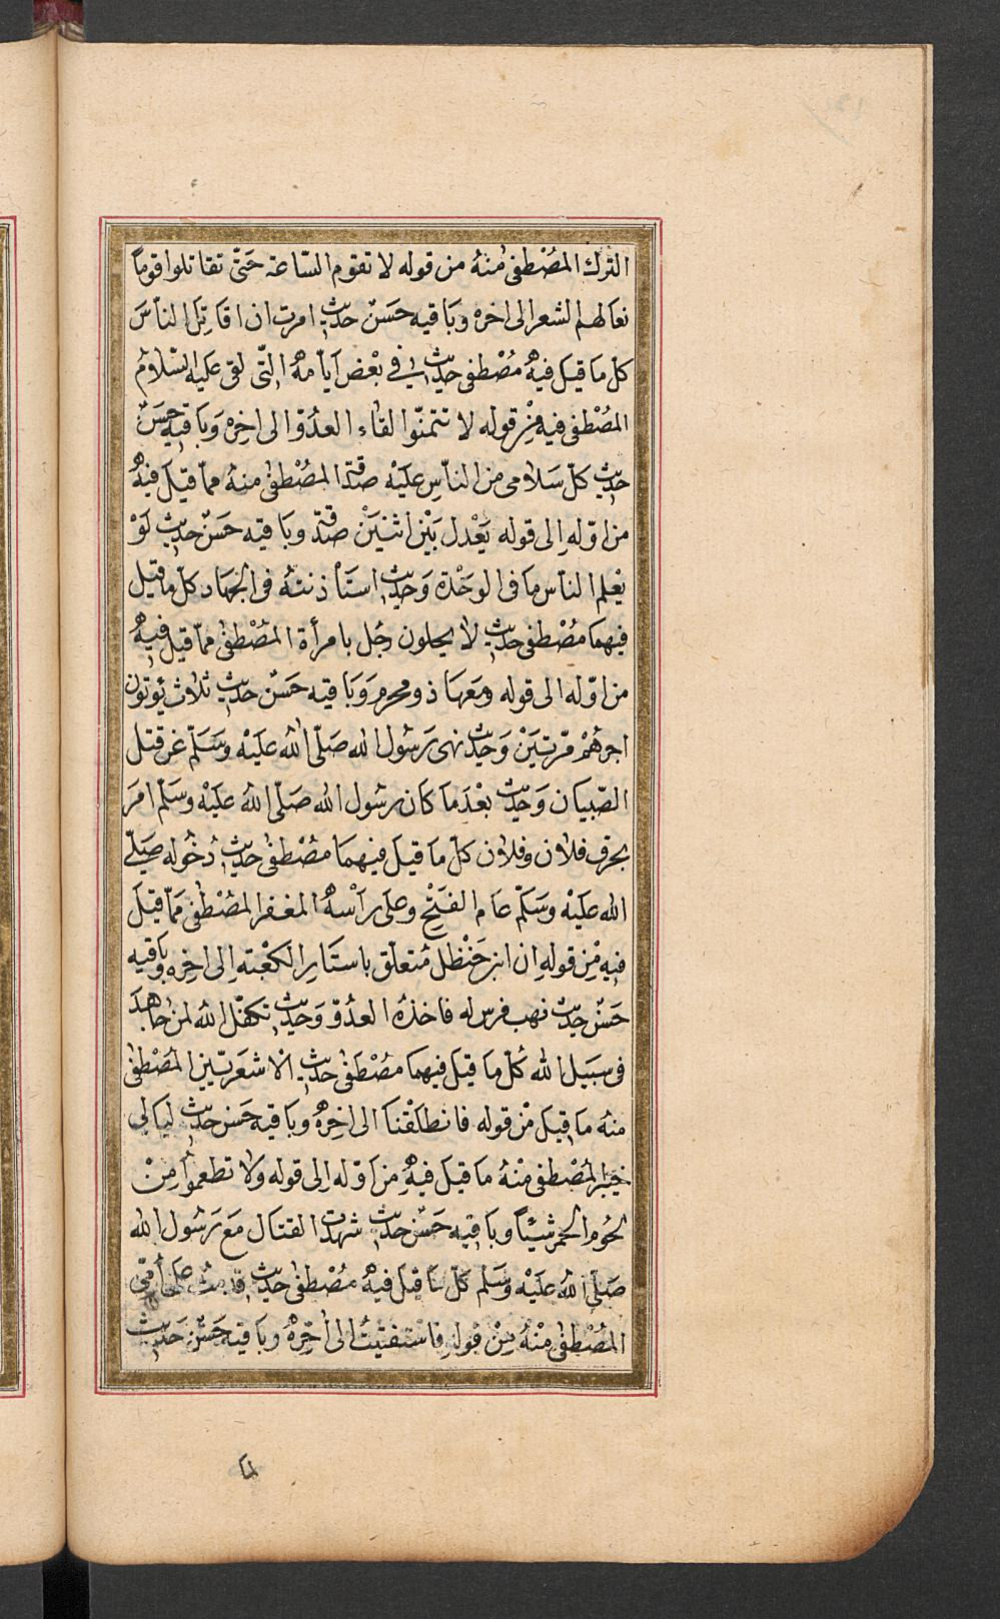 الترك المصطفى منه من قوله لا تقوم الساعة حتى تقاتلوا قوماً
نعالهم الشعر الى اخره وباقيه حسن حديث امرت ان اقاتل الناس
كل ما قيل فيه مصطفى حديث في بعض ايامه التى لقى عليه السلام
المصطفى فيه من قوله لا تتمنوا لقاء العدو الى اخره وباقيه حسن
حديث كل سلامى من الناس عليه صدقة المصطفى منه مما قيل فيه
من اوله الى قوله يعدل بين اثنين صدقة وباقيه حسن حديث لو
يعلم الناس ما فى الوحدة وحديث استأذنته فى الجهاد كل ما قيل
فيهما مصطفى حديث لا يخلون رجل بامرأة المصطفى مما قيل فيه
من اوله الى قوله ومعها ذو محرم وباقيه حسن حديث ثلاث يؤتون
اجرهم مرتين وحديث نهى رسول الله صلى الله عليه وسلم عن قتل
الصبيان وحديث بعد ما كان رسول الله صلى الله عليه وسلم امر
بحرق فلان وفلان كل ما قيل فيهما مصطفى حديث دخوله صلى
الله عليه وسلم عام الفتح وعلى رأسه المغفر المصطفى مما قيل
فيه من قوله ان ابن خنظل متعلق باستار الكعبته الى اخره وباقيه
حسن حديث نهب فرس له فاخذه العدو وحديث تكفل الله لمن جاهد
فى سبيل الله كل ما قيل فيهما مصطفى حديث الاشعريين المصطفى
منه ما قيل من قوله فانطلقنا الى اخره وباقيه حسن حديث ليالي
خيبر المصطفى منه ما قيل فيه من اوله الى قوله ولا تطعموا من
لحوم الحمر شيئاً وباقيه حسن حديث شهدت القتال مع رسول الله
صلى الله عليه وسلم كل ما قيل فيه مصطفى حديث قدمت على امى
المصطفى منه من قوله فاستفتيت الى اخره وباقيه حسن حديث
لما